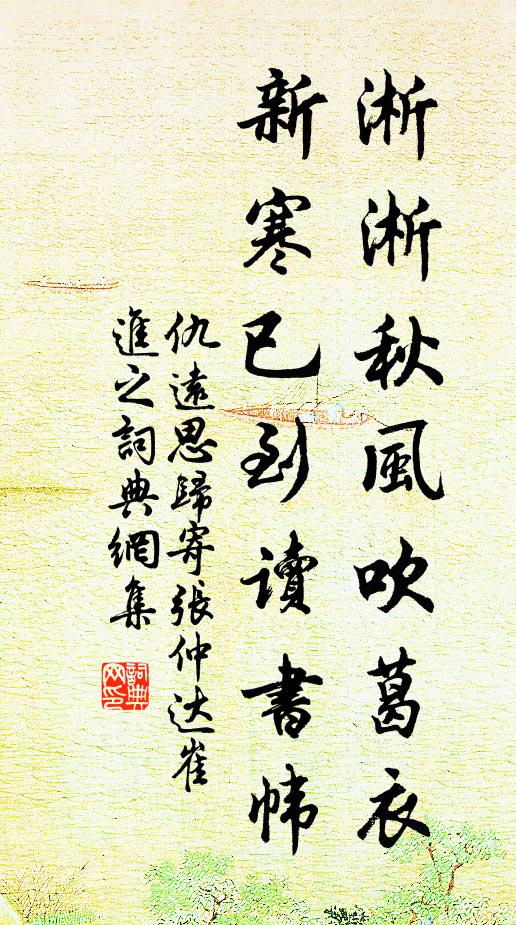 淅淅秋風吹葛衣
新寒已到讀書幃
仇遠思歸寄張仲达崔
進之詞典網集
詞典
网印